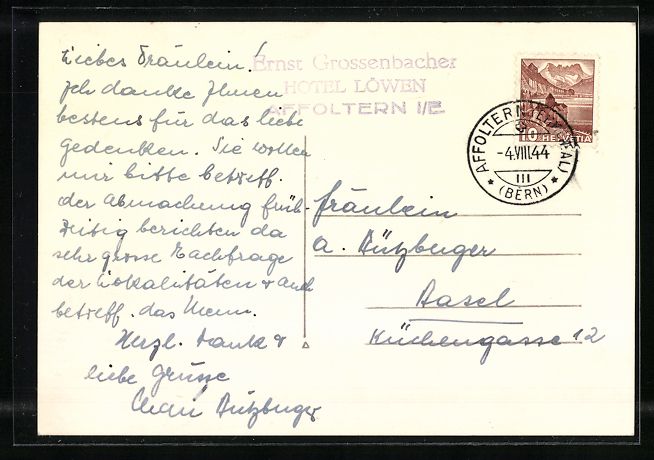 Liebes Fräulein!
Ich danke Ihnen
bestens für das liebe
Gedenken. Sie wollen
mir bitte betreff.
der Abmachung früh-
zeitig berichten da
sehr grosse Nachfrage
der Lokalitäten & auch
betreff. das Menu.
Herzl. Dank &
liebe Grüsse
Bützberger
Ernst Grossenbacher
HOTEL LÖWEN
AFFOLTERN I/E
10 HELVETIA
AFFOLTERN (EMMENTAL)
-4.VIII.44
III
(BERN)
Fräulein
A. Bützberger
Basel
Küchengasse 12